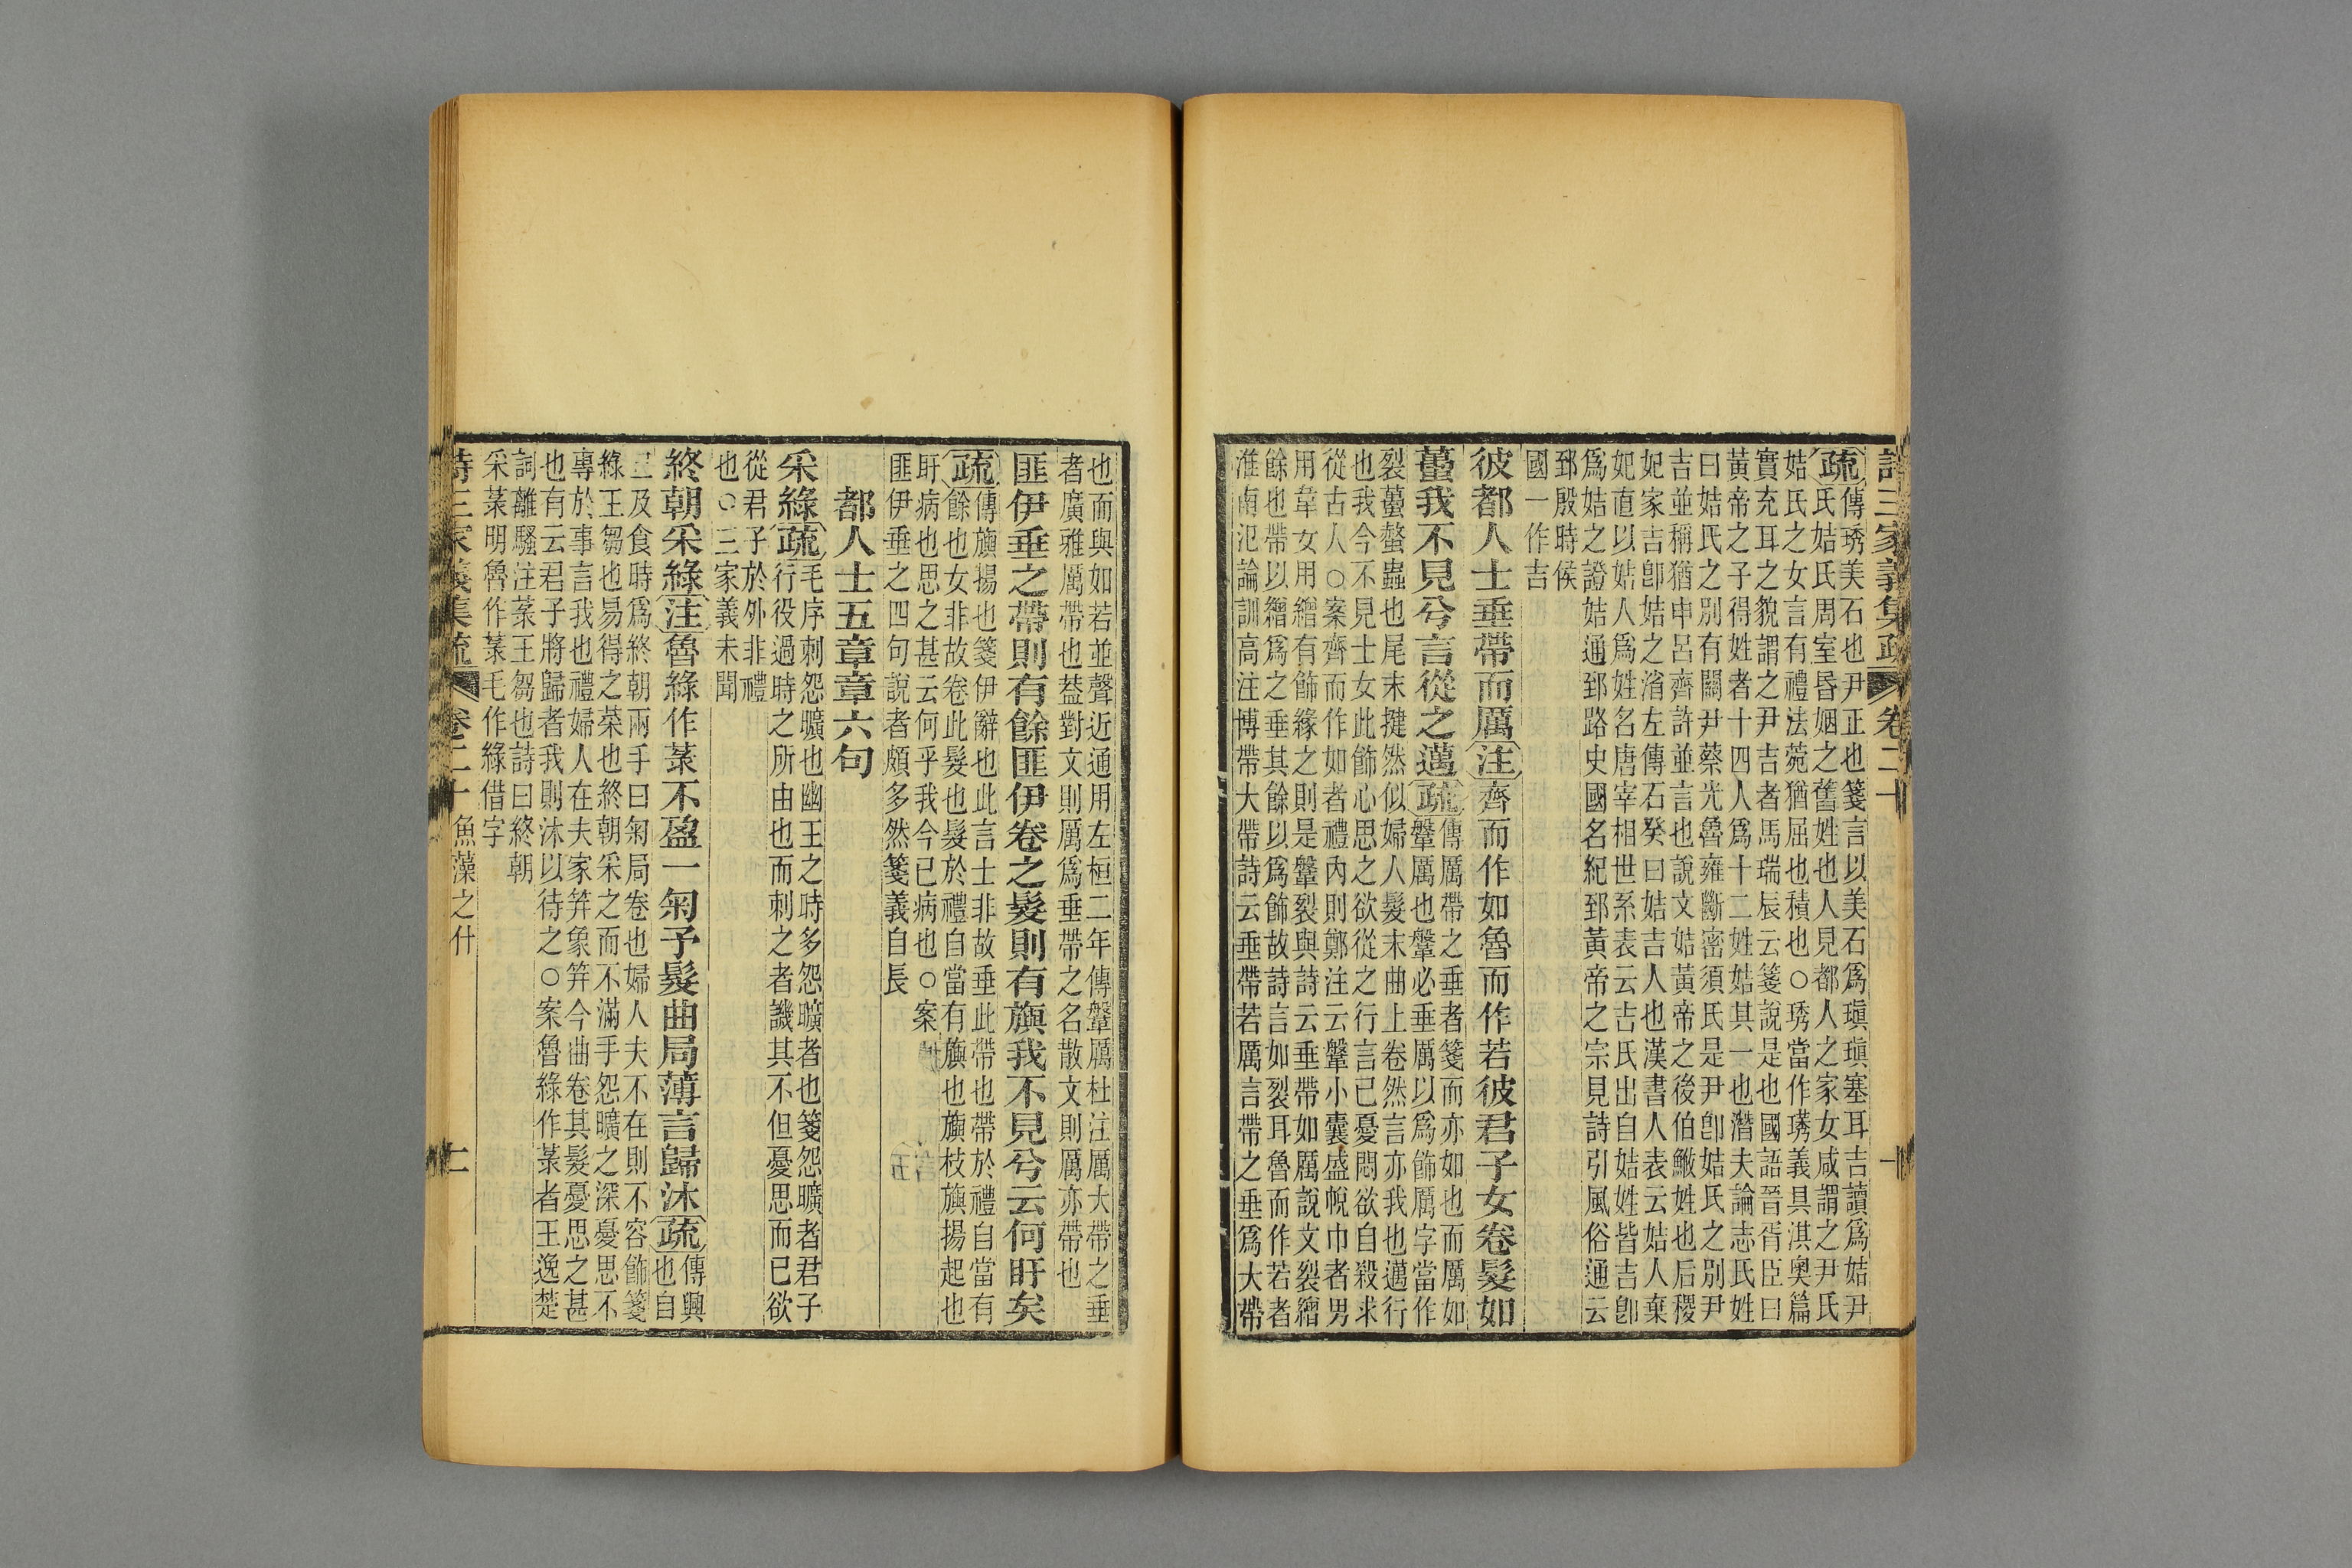 詩三家義集疏 卷二十 十
疏 傳琇美石也尹正也箋言以美石爲瑱瑱塞耳吉讀爲姞尹
氏姞氏周室昬姻之舊姓也人見都人之家女咸謂之尹氏
姞氏之女言有禮法菀猶屈也積也○琇當作璓義具淇奧篇
實充耳之貌謂之尹吉者馬瑞辰云箋說是也國語晉胥臣曰
黃帝之子得姓者十四人爲十二姓姞其一也潛夫論志氏姓
曰姞氏之別有闞尹蔡光魯雍斷密須氏是尹卽姞氏之別尹
吉並稱猶申呂齊許並言也說文姞黃帝之後伯鯈姓也后稷
妃家吉卽姞之消左傳石癸曰姞吉人也漢書人表云姞人棄
妃直以姞人爲姓名唐宰相世系表云吉氏出自姞姓皆吉卽
爲姞之證姞通郅路史國名紀郅黃帝之宗見詩引風俗通云
郅殷時侯
國一作吉
彼都人士垂帶而厲注齊而作如魯而作若彼君子女卷髮如
蠆我不見兮言從之邁疏 傳厲帶之垂者箋而亦如也而厲如
鞶厲也鞶必垂厲以爲飾厲字當作
裂蠆螫蟲也尾末揵然似婦人髮末曲上卷然言亦我也邁行
也我今不見士女此飾心思之欲從之行言已憂悶欲自殺求
從古人○案齊而作如者禮內則鄭注云鞶小囊盛帨巾者男
用韋女用繒有飾緣之則是鞶裂與詩云垂帶如厲說文裂繒
餘也帶以繒爲之垂其餘以爲飾故詩言如裂耳魯而作若者
淮南氾論訓高注博帶大帶詩云垂帶若厲言帶之垂爲大帶
也而與如若並聲近通用左桓二年傳鞶厲杜注厲大帶之垂
者廣雅厲帶也葢對文則厲爲垂帶之名散文則厲亦帶也
匪伊垂之帶則有餘匪伊卷之髮則有旟我不見兮云何盱矣
疏 傳旟揚也箋伊辭也此言士非故垂此帶也帶於禮自當有
餘也女非故卷此髮也髮於禮自當有旟也旟枝旟揚起也
盱病也思之甚云何乎我今已病也○案
匪伊垂之四句說者頗多然箋義自長
都人士五章章六句
采綠疏 毛序刺怨曠也幽王之時多怨曠者也箋怨曠者君子
行役過時之所由也而刺之者譏其不但憂思而已欲
從君子於外非禮
也○三家義未聞
終朝采綠注魯綠作菉不盈一匊予髮曲局薄言歸沐疏 傳興
也自
旦及食時爲終朝兩手曰匊局卷也婦人夫不在則不容飾箋
綠王芻也易得之菜也終朝采之而不滿手怨曠之深憂思不
專於事言我也禮婦人在夫家笄象笄今曲卷其髮憂思之甚
也有云君子將歸者我則沐以待之○案魯綠作菉者王逸楚
詞離騷注菉王芻也詩曰終朝
采菉明魯作菉毛作綠借字
詩三家義集疏 卷二十 魚藻之什 二